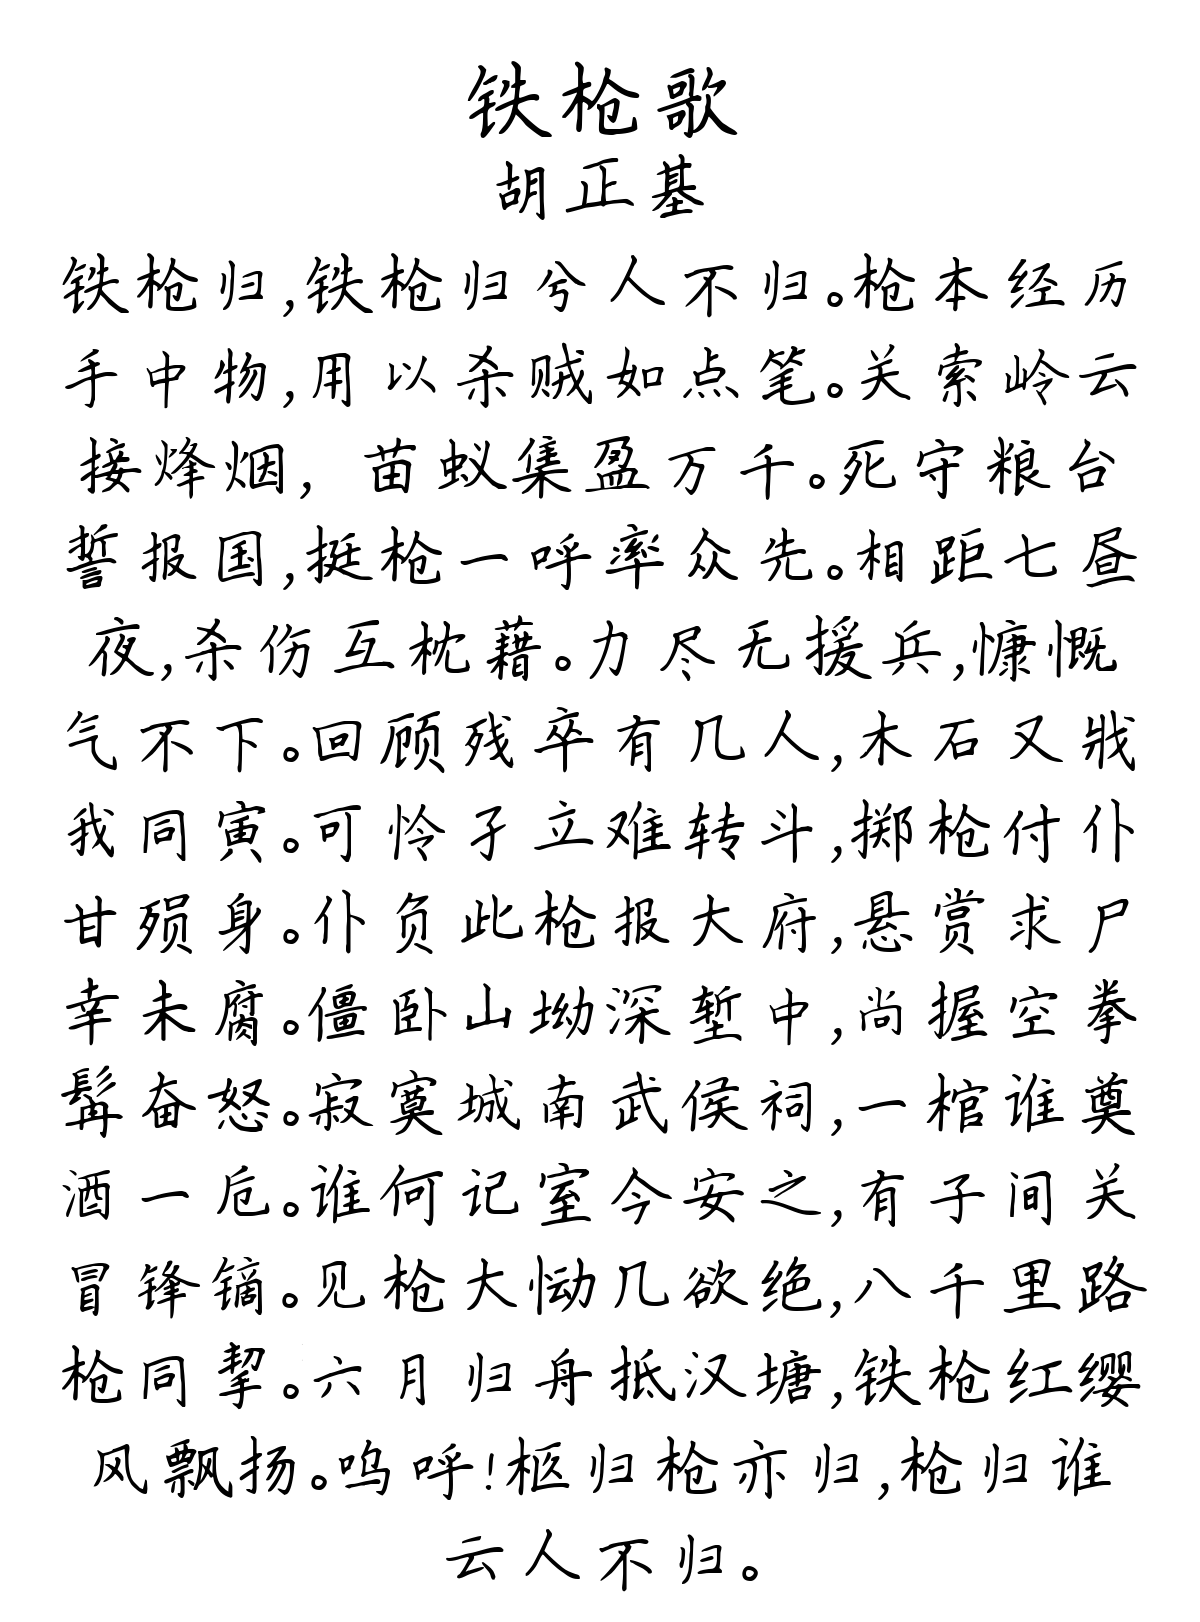 铁枪歌
胡正基
铁枪归,铁枪归兮人不归。枪本经历
手中物,用以杀贼如点笔。关索岭云
接烽烟,苗蚁集盈万千。死守粮台
誓报国,挺枪一呼率众先。相距七昼
夜,杀伤互枕藉。力尽无援兵,慷慨
气不下。回顾残卒有几人,木石又戕
我同寅。可怜孑立难转斗,掷枪付仆
甘殒身。仆负此枪报大府,悬赏求尸
幸未腐。僵卧山坳深堑中,尚握空拳
髯奋怒。寂寞城南武侯祠,一棺谁奠
酒一卮。谁何记室今安之,有子间关
冒锋镝。见枪大恸几欲绝,八千里路
枪同挈。六月归舟抵汉塘,铁枪红缨
风飘扬。呜呼!柩归枪亦归,枪归谁
云人不归。